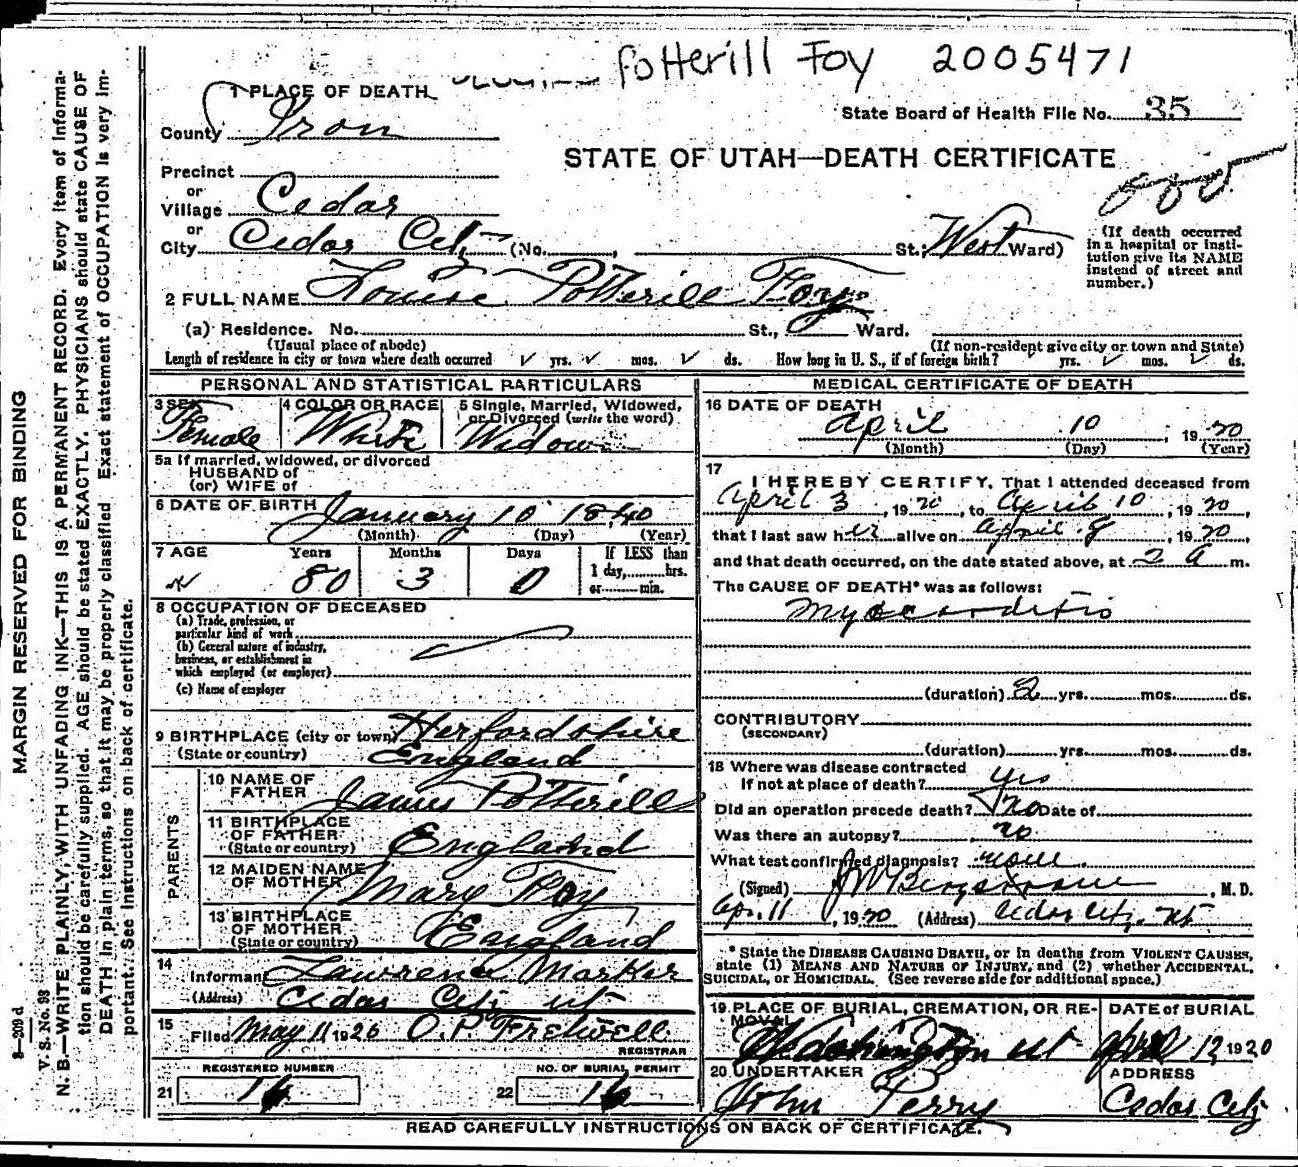 Potterill Foy 2005471
1 PLACE OF DEATH
State Board of Health File No. 35
County Iron
STATE OF UTAH—DEATH CERTIFICATE
Precinct
or
Village Cedar
or
City Cedar City (No. , St; West Ward)
(If death occurred in a hospital or institution give its NAME instead of street and number.)
2 FULL NAME Louise Potterill Foy
(a) Residence. No. St., Ward.
(Usual place of abode) (If non-resident give city or town and State)
Length of residence in city or town where death occurred yrs. mos. ds. How long in U. S., if of foreign birth? yrs. mos. ds.
PERSONAL AND STATISTICAL PARTICULARS
3 SEX Female
4 COLOR OR RACE White
5 Single, Married, Widowed, or Divorced (write the word) Widow
5a If married, widowed, or divorced
HUSBAND of
(or) WIFE of
6 DATE OF BIRTH January 10 1840
(Month) (Day) (Year)
7 AGE Years 80 Months 3 Days 0
If LESS than
1 day, hrs.
or min.
8 OCCUPATION OF DECEASED
(a) Trade, profession, or
particular kind of work
(b) General nature of industry,
business, or establishment in
which employed (or employer)
(c) Name of employer
9 BIRTHPLACE (city or town) Herfordshire
(State or country) England
PARENTS
10 NAME OF FATHER James Potterill
11 BIRTHPLACE OF FATHER (State or country) England
12 MAIDEN NAME OF MOTHER Mary Foy
13 BIRTHPLACE OF MOTHER (State or country) England
14 Informant Lawrence Marker
(Address) Cedar City Ut
15 Filed May 11 1920 O.P. Fretwell
REGISTRAR
REGISTERED NUMBER
21 16
NO. OF BURIAL PERMIT
22 16
MEDICAL CERTIFICATE OF DEATH
16 DATE OF DEATH
April 10, 1920
(Month) (Day) (Year)
17 I HEREBY CERTIFY, That I attended deceased from
April 3, 1920, to April 10, 1920,
that I last saw her alive on April 8, 1920,
and that death occurred, on the date stated above, at 2 a m.
The CAUSE OF DEATH* was as follows:
Myocarditis
(duration) 2 yrs. mos. ds.
CONTRIBUTORY
(SECONDARY)
(duration) yrs. mos. ds.
18 Where was disease contracted
If not at place of death? yes
Did an operation precede death? no Date of
Was there an autopsy? no
What test confirmed diagnosis? none.
(Signed) , M. D.
Apr. 11, 1920 (Address) Cedar City, Ut
* State the DISEASE CAUSING DEATH, or in deaths from VIOLENT CAUSES,
state (1) MEANS AND NATURE OF INJURY, and (2) whether ACCIDENTAL,
SUICIDAL, or HOMICIDAL. (See reverse side for additional space.)
19 PLACE OF BURIAL, CREMATION, OR REMOVAL
Washington Ut
DATE of BURIAL
April 12 1920
20 UNDERTAKER
John Perry
ADDRESS
Cedar City
READ CAREFULLY INSTRUCTIONS ON BACK OF CERTIFICATE.
MARGIN RESERVED FOR BINDING
S—209 d
V. S. No. 98
N. B.—WRITE PLAINLY, WITH UNFADING INK—THIS IS A PERMANENT RECORD. Every item of information should be carefully supplied. AGE should be stated EXACTLY. PHYSICIANS should state CAUSE OF DEATH in plain terms, so that it may be properly classified. Exact statement of OCCUPATION is very important. See instructions on back of certificate.